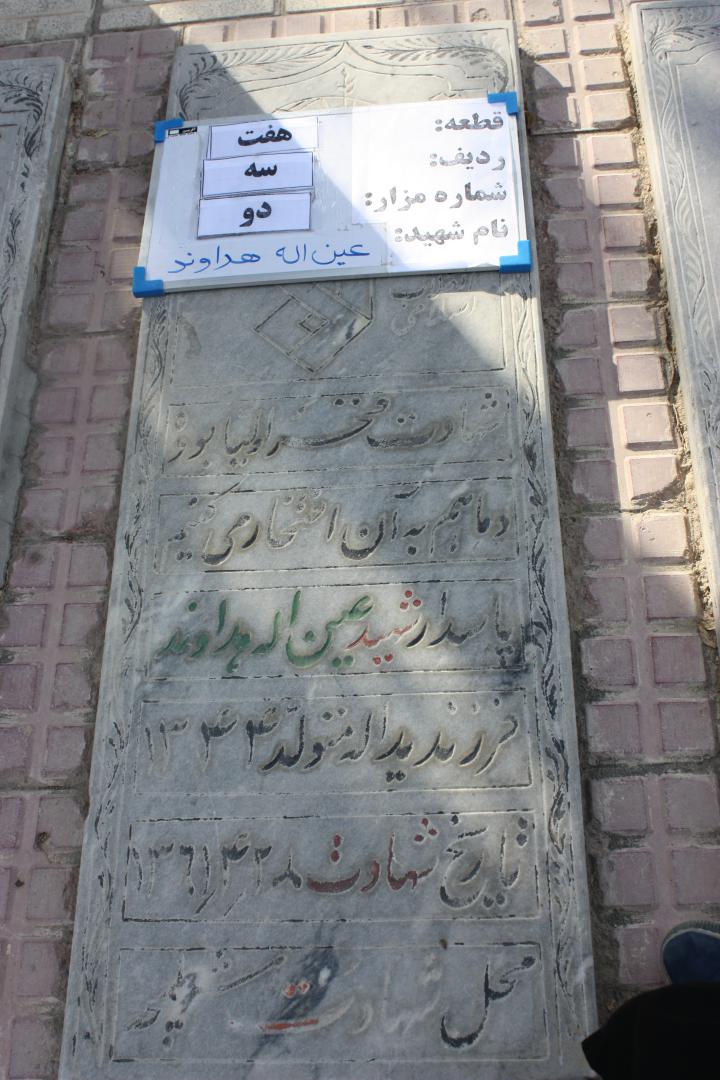 قطعه: هفت
ردیف: سه
شماره مزار: دو
نام شهید: عین اله هداوند
انقلاب
اسلامی
شهادت فخر اولیا بوده
و ما هم به آن افتخار می کنیم
پاسدار شهید عین اله هداوند
فرزند یداله متولد ۱۳۴۴
تاریخ شهادت ۱۳۶۱/۴/۲۸
محل شهادت